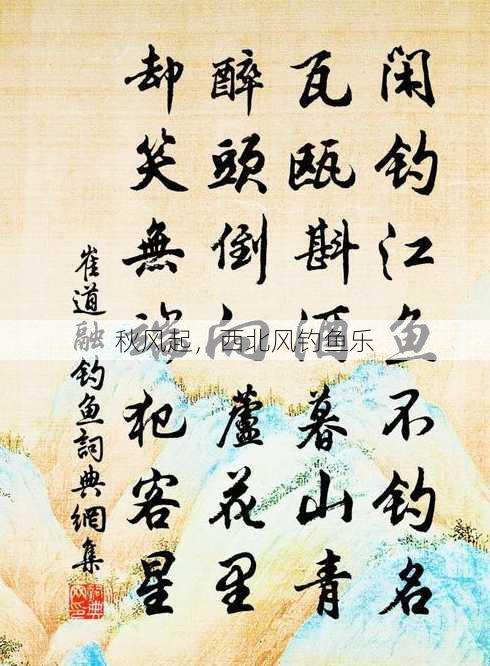 闲钓江鱼不钓名
瓦瓯斟酒暮山青
醉頭倒向蘆花里
却笑無端犯客星
崔道融钓鱼詞典網集
秋风起，西北风钓鱼乐